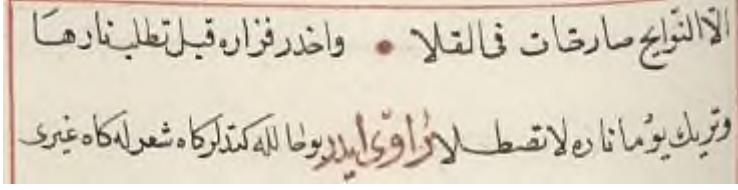 الا النوايح صارخات فى الفلا • واحذر فزاره قبل تطلب نارها
وتريك يومًا ناره لا تصطلا راوى ايدر بوطا لله كتدلر كاه شعر له كاه غيرى